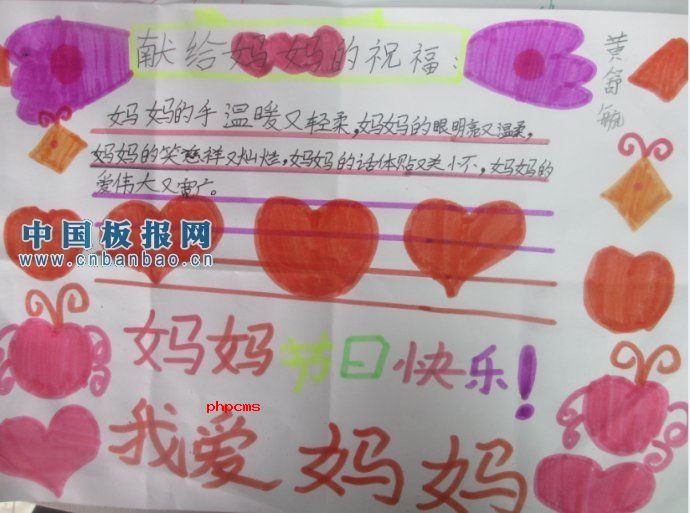 献给妈妈的祝福:
黄舒
妈妈的手温暖又轻柔,妈妈的眼明亮又温柔,
妈妈的笑慈祥又灿烂,妈妈的话体贴又
妈妈的
爱伟大又宽广。
中国板报网
www.cnbanbao.cn
妈妈节日快乐!
phpcms
我爱妈妈